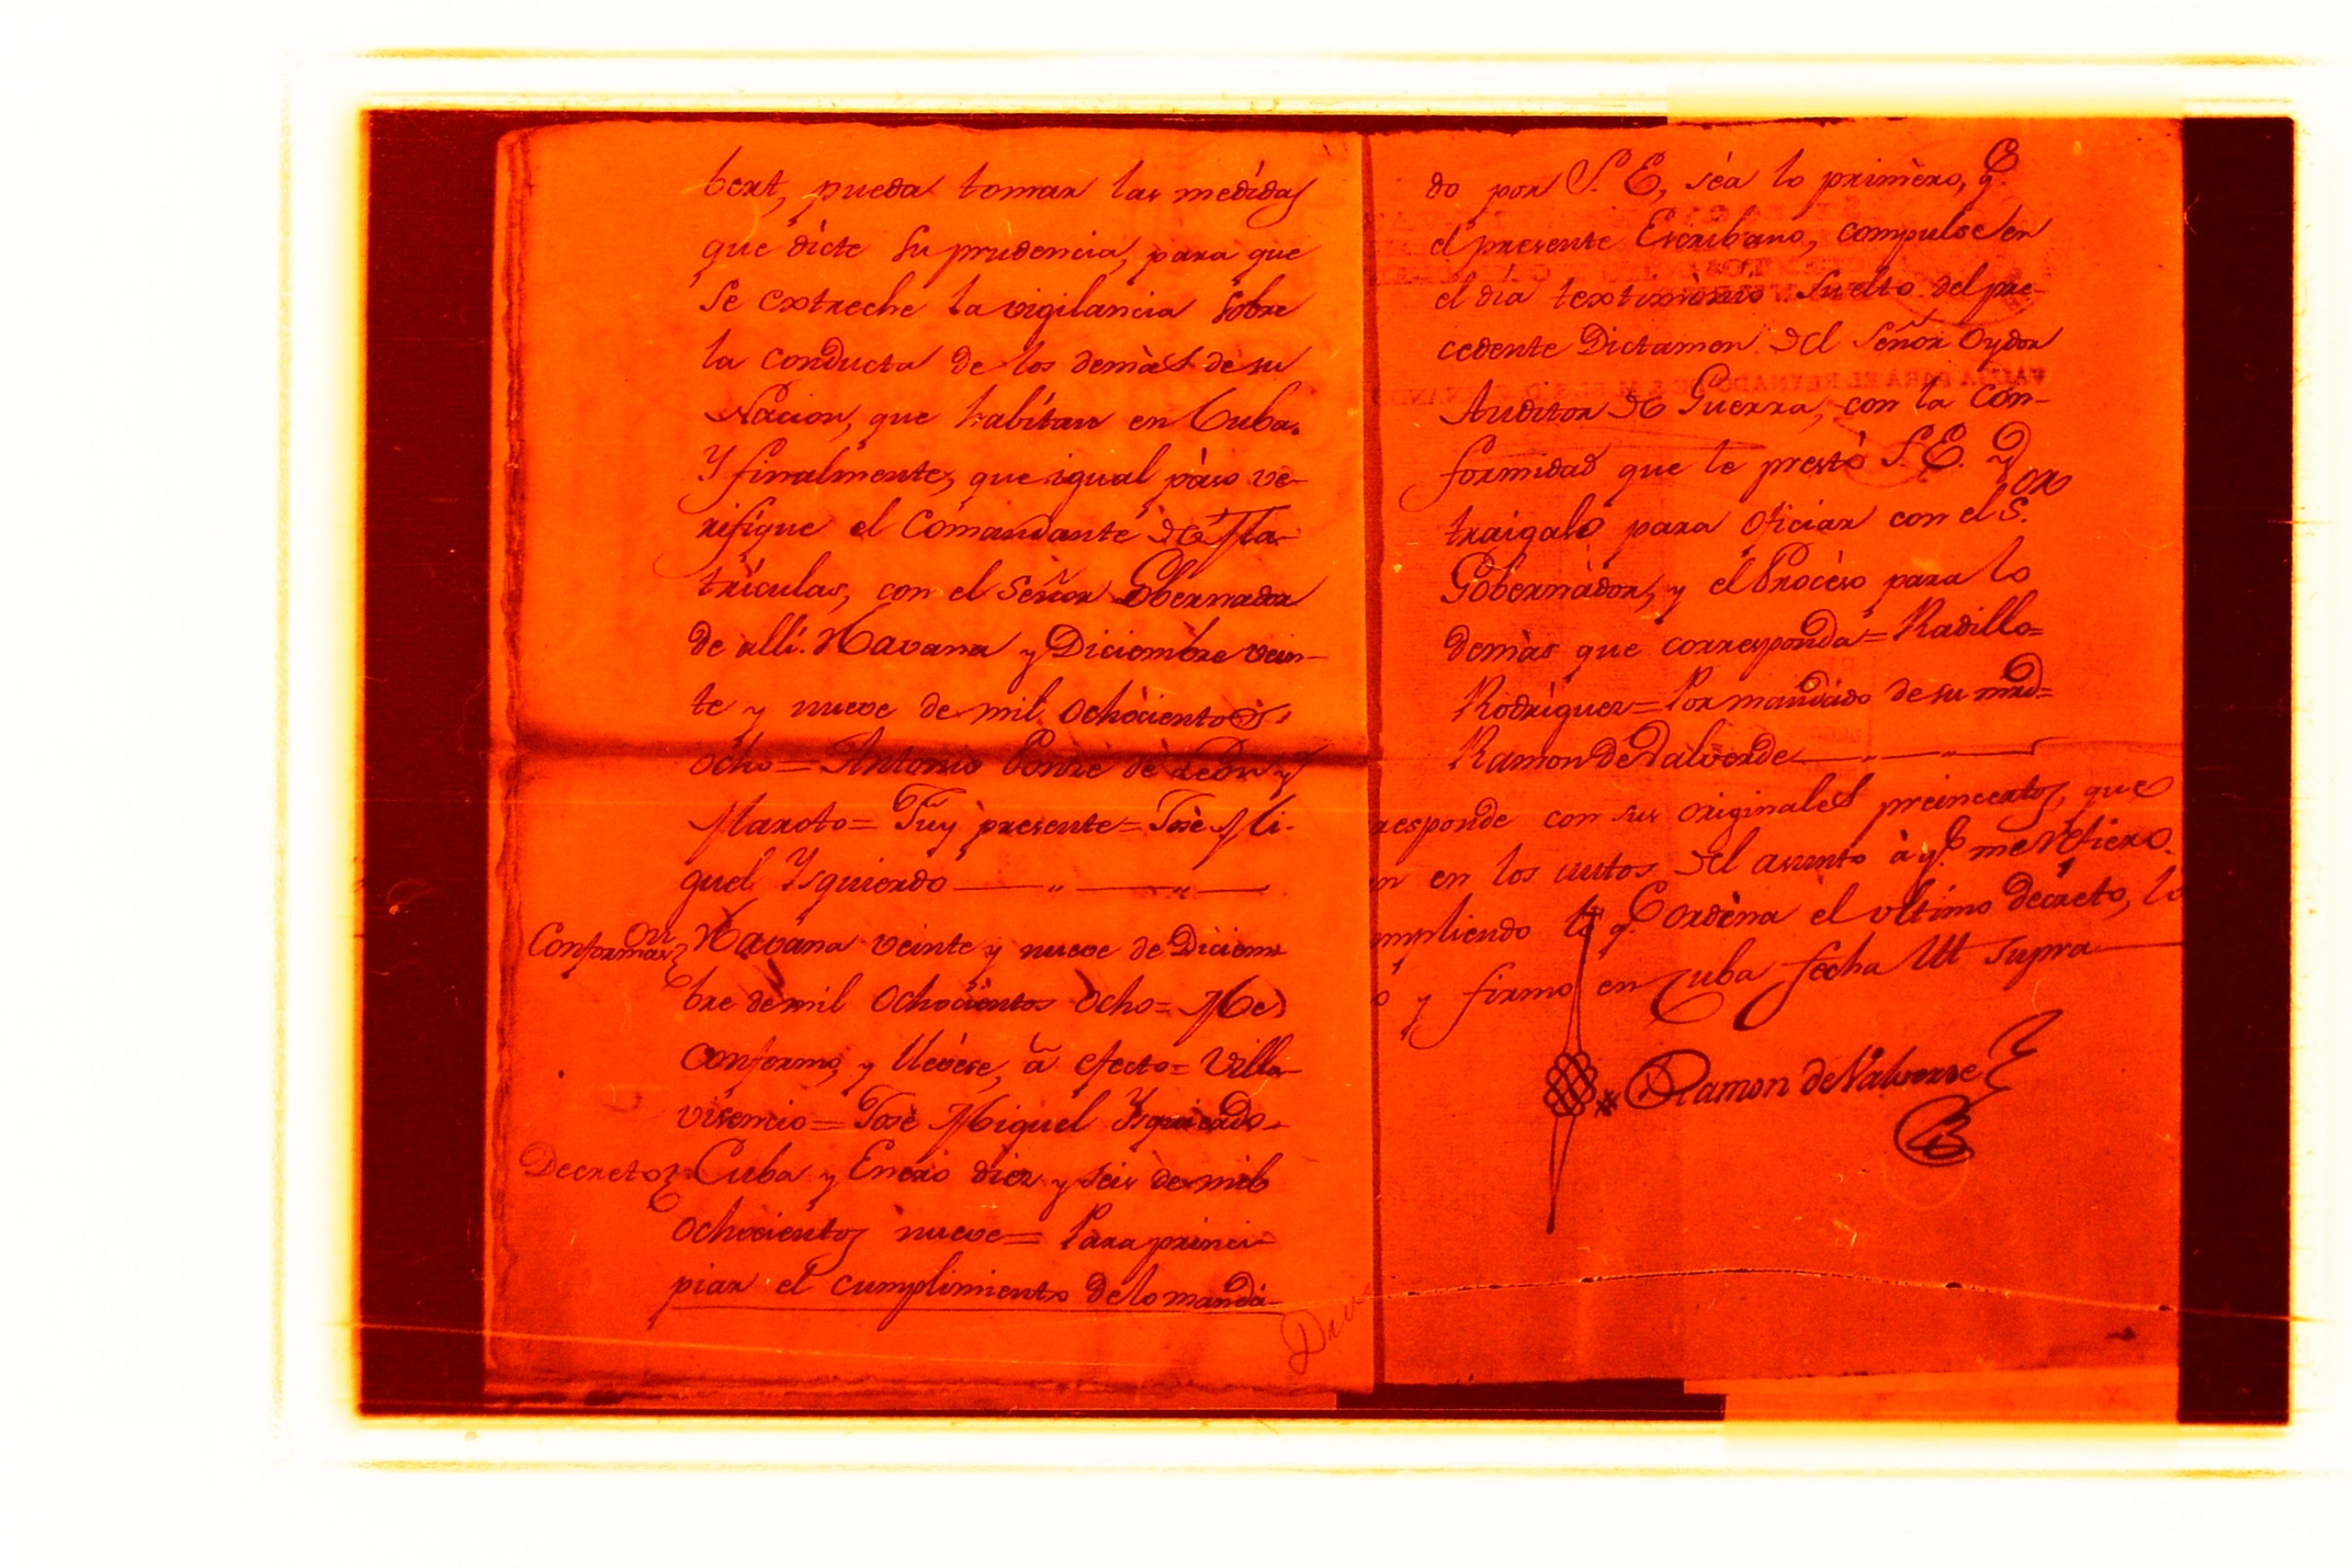 bert, pueda tomar las medidas
que dicte su prudencia, para que
se extreche la vigilancia sobre
la conducta de los demàs de su
Nacion, que habítan en Cuba.
Y finalmente, que igual pàso ve-
rifique el Comandante de Ma-
trículas, con el Señor Gobernador
de allí. Havana y Diciembre vein-
te y nueve de mil ochòcientos
ocho = Antonio Ponze de Leon y
Maroto = Fuy presente = José Mi-
guel Ysquierdo
Conformaz.on Havana veinte y nueve de Diciem
bre de mil ochocientos ocho = Me
conformo, y llevese, à efecto = Villa-
visencio = José Miguel Ysquierdo -
Decreto Cuba y Enero diez y seis de mil
ochocientos nueve = Para princi-
piar el cumplimiento de lo manda-
do por S. E, séa lo primèro, q.e
el presente Escribano, compulse en
el día textimònio suelto del pre-
cedente Dictamen del Señor Oydor
Auditor de Guerra, con la con-
formidad que le prestò S. E. y
traigalo para oficiar con el S.or
Gobernàdor, y el Procèso para lo
demàs que corresponda = Radillo =
Rodríguez = Por mandàdo de su mrd =
Ramon de Valverde
responde con sus originales preincertos, que
n en los autos del asunto à q.e me refiero.
mpliendo lo q.e ordèna el ultimo decreto, lo
o y firmo en Cuba fecha Ut supra
Ramon de Valverde